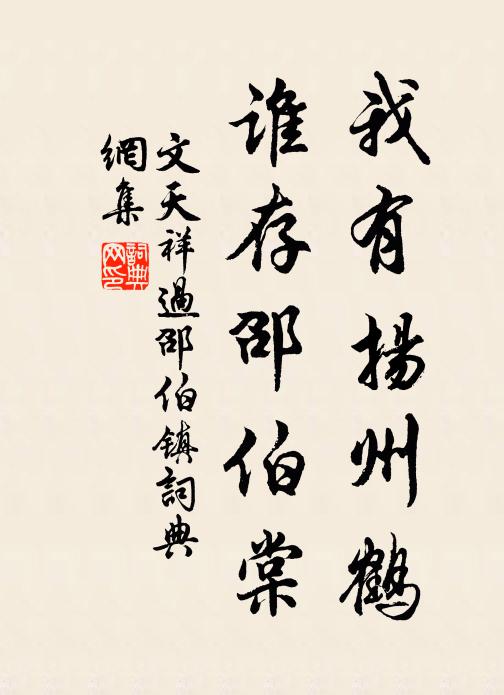 我有揚州鶴
誰存邵伯棠
文天祥過邵伯鎮詞典
網集
詞典
网印